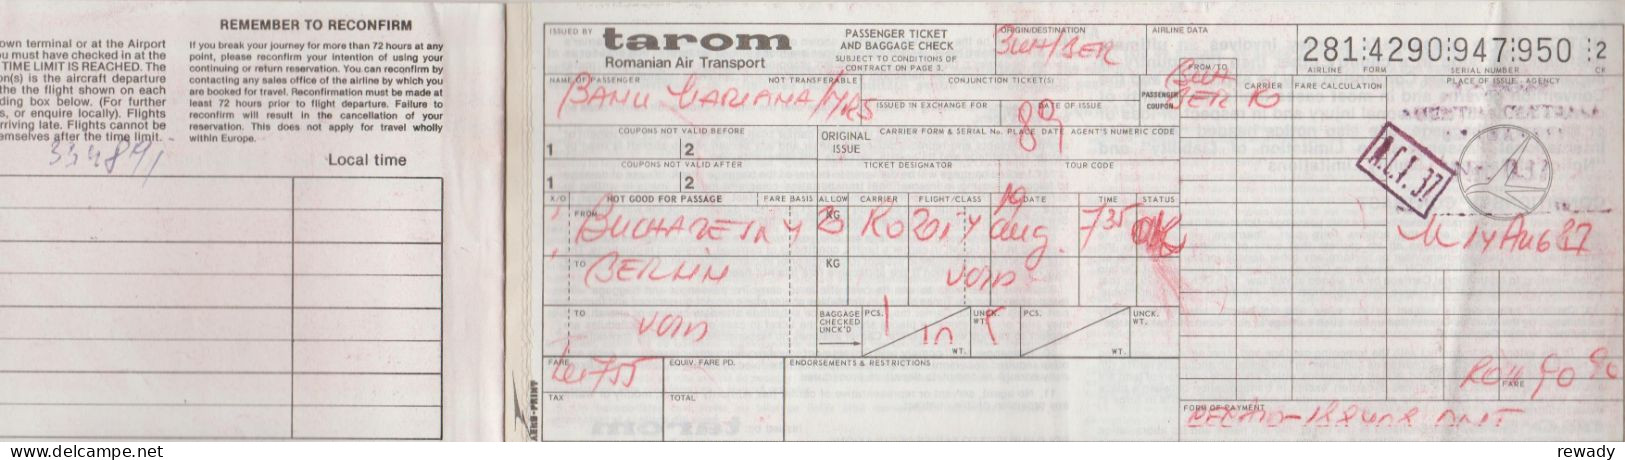 REMEMBER TO RECONFIRM
own terminal or at the Airport
u must have checked in at the
TIME LIMIT IS REACHED. The
on(s) is the aircraft departure
the the flight shown on each
ding box below. (For further
s, or enquire locally). Flights
rriving late. Flights cannot be
emselves after the time limit.
If you break your journey for more than 72 hours at any
point, please reconfirm your intention of using your
continuing or return reservation. You can reconfirm by
contacting any sales office of the airline by which you
are booked for travel. Reconfirmation must be made at
least 72 hours prior to flight departure. Failure to
reconfirm will result in the cancellation of your
reservation. This does not apply for travel wholly
within Europe.
Local time
ISSUED BY
tarom
Romanian Air Transport
PASSENGER TICKET
AND BAGGAGE CHECK
SUBJECT TO CONDITIONS OF
CONTRACT ON PAGE 3.
ORIGIN/DESTINATION
BUH/BER
AIRLINE DATA
281:4290:947:950 :2
AIRLINE FORM SERIAL NUMBER CK
NAME OF PASSENGER NOT TRANSFERABLE CONJUNCTION TICKET(S)
BANU MARIANA/MRS
ISSUED IN EXCHANGE FOR DATE OF ISSUE
89
PASSENGER
COUPON
FROM/TO CARRIER FARE CALCULATION
BUH
BER RO
PLACE OF ISSUE - AGENCY
COUPONS NOT VALID BEFORE
1 2
ORIGINAL
ISSUE
CARRIER FORM & SERIAL No. PLACE DATE AGENT'S NUMERIC CODE
COUPONS NOT VALID AFTER
1 2
TICKET DESIGNATOR TOUR CODE
A.C.I. 37
X/O NOT GOOD FOR PASSAGE FARE BASIS ALLOW CARRIER FLIGHT/CLASS DATE TIME STATUS
FROM BUCHAREST KG RO aug. 735 OK
14 AUG
TO BERLIN KG VOID
TO VOID
BAGGAGE
CHECKED
UNCK'D
PCS. WT. UNCK.
WT.
PCS. WT. UNCK.
WT.
FARE EQUIV. FARE PD. ENDORSEMENTS & RESTRICTIONS
Lei 755
TAX TOTAL
FARE
FORM OF PAYMENT
AERO-PRINT
rewady